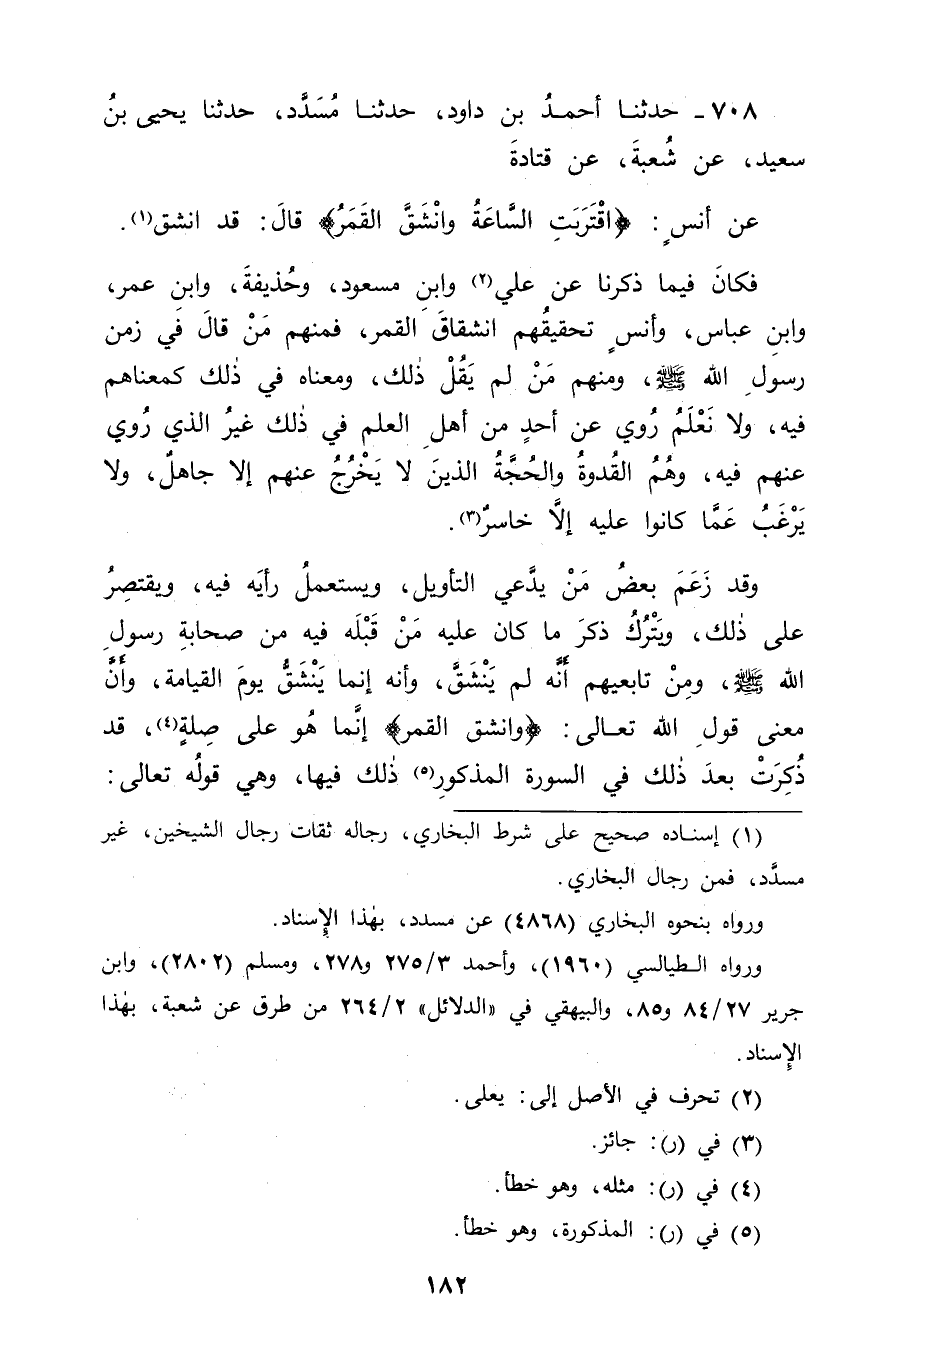 ٧٠٨ - حدثنا أحمدُ بن داود، حدثنا مُسَدَّد، حدثنا يحيى بنُ
سعيد، عن شُعبةَ، عن قتادةَ
عن أنسٍ: ﴿اقْتَرَبَتِ السَّاعَةُ وانْشَقَّ القَمَرُ﴾ قالَ: قد انشق(١).
فكانَ فيما ذكرنا عن علي(٢) وابنِ مسعود، وحُذيفةَ، وابنِ عمر،
وابنِ عباس، وأنسٍ تحقيقُهم انشقاقَ القمر، فمنهم مَنْ قالَ في زمن
رسولِ الله ﷺ، ومنهم مَنْ لم يَقُلْ ذٰلك، ومعناه في ذٰلك كمعناهم
فيه، ولا نَعْلَمُ رُوي عن أحدٍ من أهلِ العلم في ذلك غيرُ الذي رُوي
عنهم فيه، وهُمُ القُدوةُ والحُجَّةُ الذينَ لا يَخْرُجُ عنهم إلا جاهلٌ، ولا
يَرْغَبُ عَمَّا كانوا عليه إلَّا خاسرٌ(٣).
وقد زَعَمَ بعضُ مَنْ يدَّعي التأويل، ويستعملُ رأيَه فيه، ويقتصِرُ
على ذٰلك، ويَتْرُكُ ذكرَ ما كان عليه مَنْ قَبْلَه فيه من صحابةِ رسولِ
الله ﷺ، ومِنْ تابعيهم أنَّه لم يَنْشَقَّ، وأنه إنما يَنْشَقُّ يومَ القيامة، وأنَّ
معنى قولِ الله تعالى: ﴿وانشق القمر﴾ إنَّما هُو على صِلةٍ(٤)، قد
ذُكِرَتْ بعدَ ذٰلك في السورة المذكور(٥) ذٰلك فيها، وهي قولُه تعالى:
(١) إسناده صحيح على شرط البخاري، رجاله ثقات رجال الشيخين، غير
مسدَّد، فمن رجال البخاري.
ورواه بنحوه البخاري (٤٨٦٨) عن مسدد، بهٰذا الإسناد.
ورواه الطيالسي (١٩٦٠)، وأحمد ٢٧٥/٣ و٢٧٨، ومسلم (٢٨٠٢)، وابن
جرير ٨٤/٢٧ و٨٥، والبيهقي في «الدلائل» ٢٦٤/٢ من طرق عن شعبة، بهٰذا
الإسناد.
(٢) تحرف في الأصل إلى: يعلى.
(٣) في (ر): جائز.
(٤) في (ر): مثله، وهو خطأ.
(٥) في (ر): المذكورة، وهو خطأ.
١٨٢